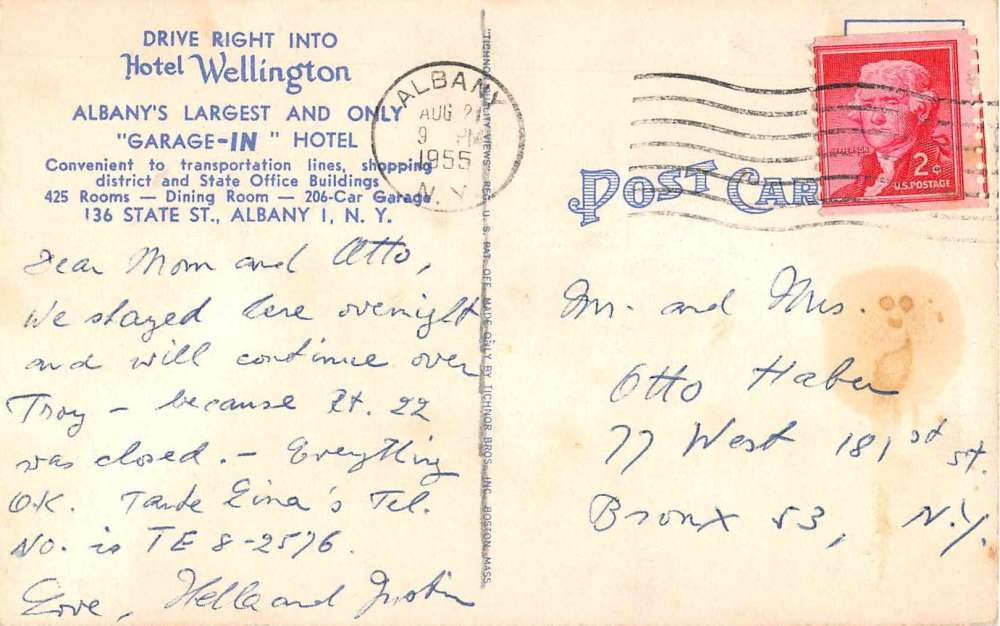 DRIVE RIGHT INTO
Hotel Wellington
ALBANY'S LARGEST AND ONLY
"GARAGE-IN" HOTEL
Convenient to transportation lines, shopping
district and State Office Buildings
425 Rooms — Dining Room — 206-Car Garage
136 STATE ST., ALBANY 1, N. Y.
Dear Mom and Otto,
We stayed here overnight
and will continue over
Troy - because Rt. 22
was closed. - Everything
O.K. Tante 's Tel.
No. is TE 8-2576.
Love, Hella and Justin
TICHNOR QUALITY VIEWS REG. U. S. PAT. OFF. MADE ONLY BY TICHNOR BROS. INC. BOSTON, MASS.
ALBANY
AUG 21
9 PM
1955
N.Y.
POST CAR
JEFFERSON
2¢
U.S. POSTAGE
Mr. and Mrs.
Otto Haber
77 West 181st St.
Bronx 53, N.Y.